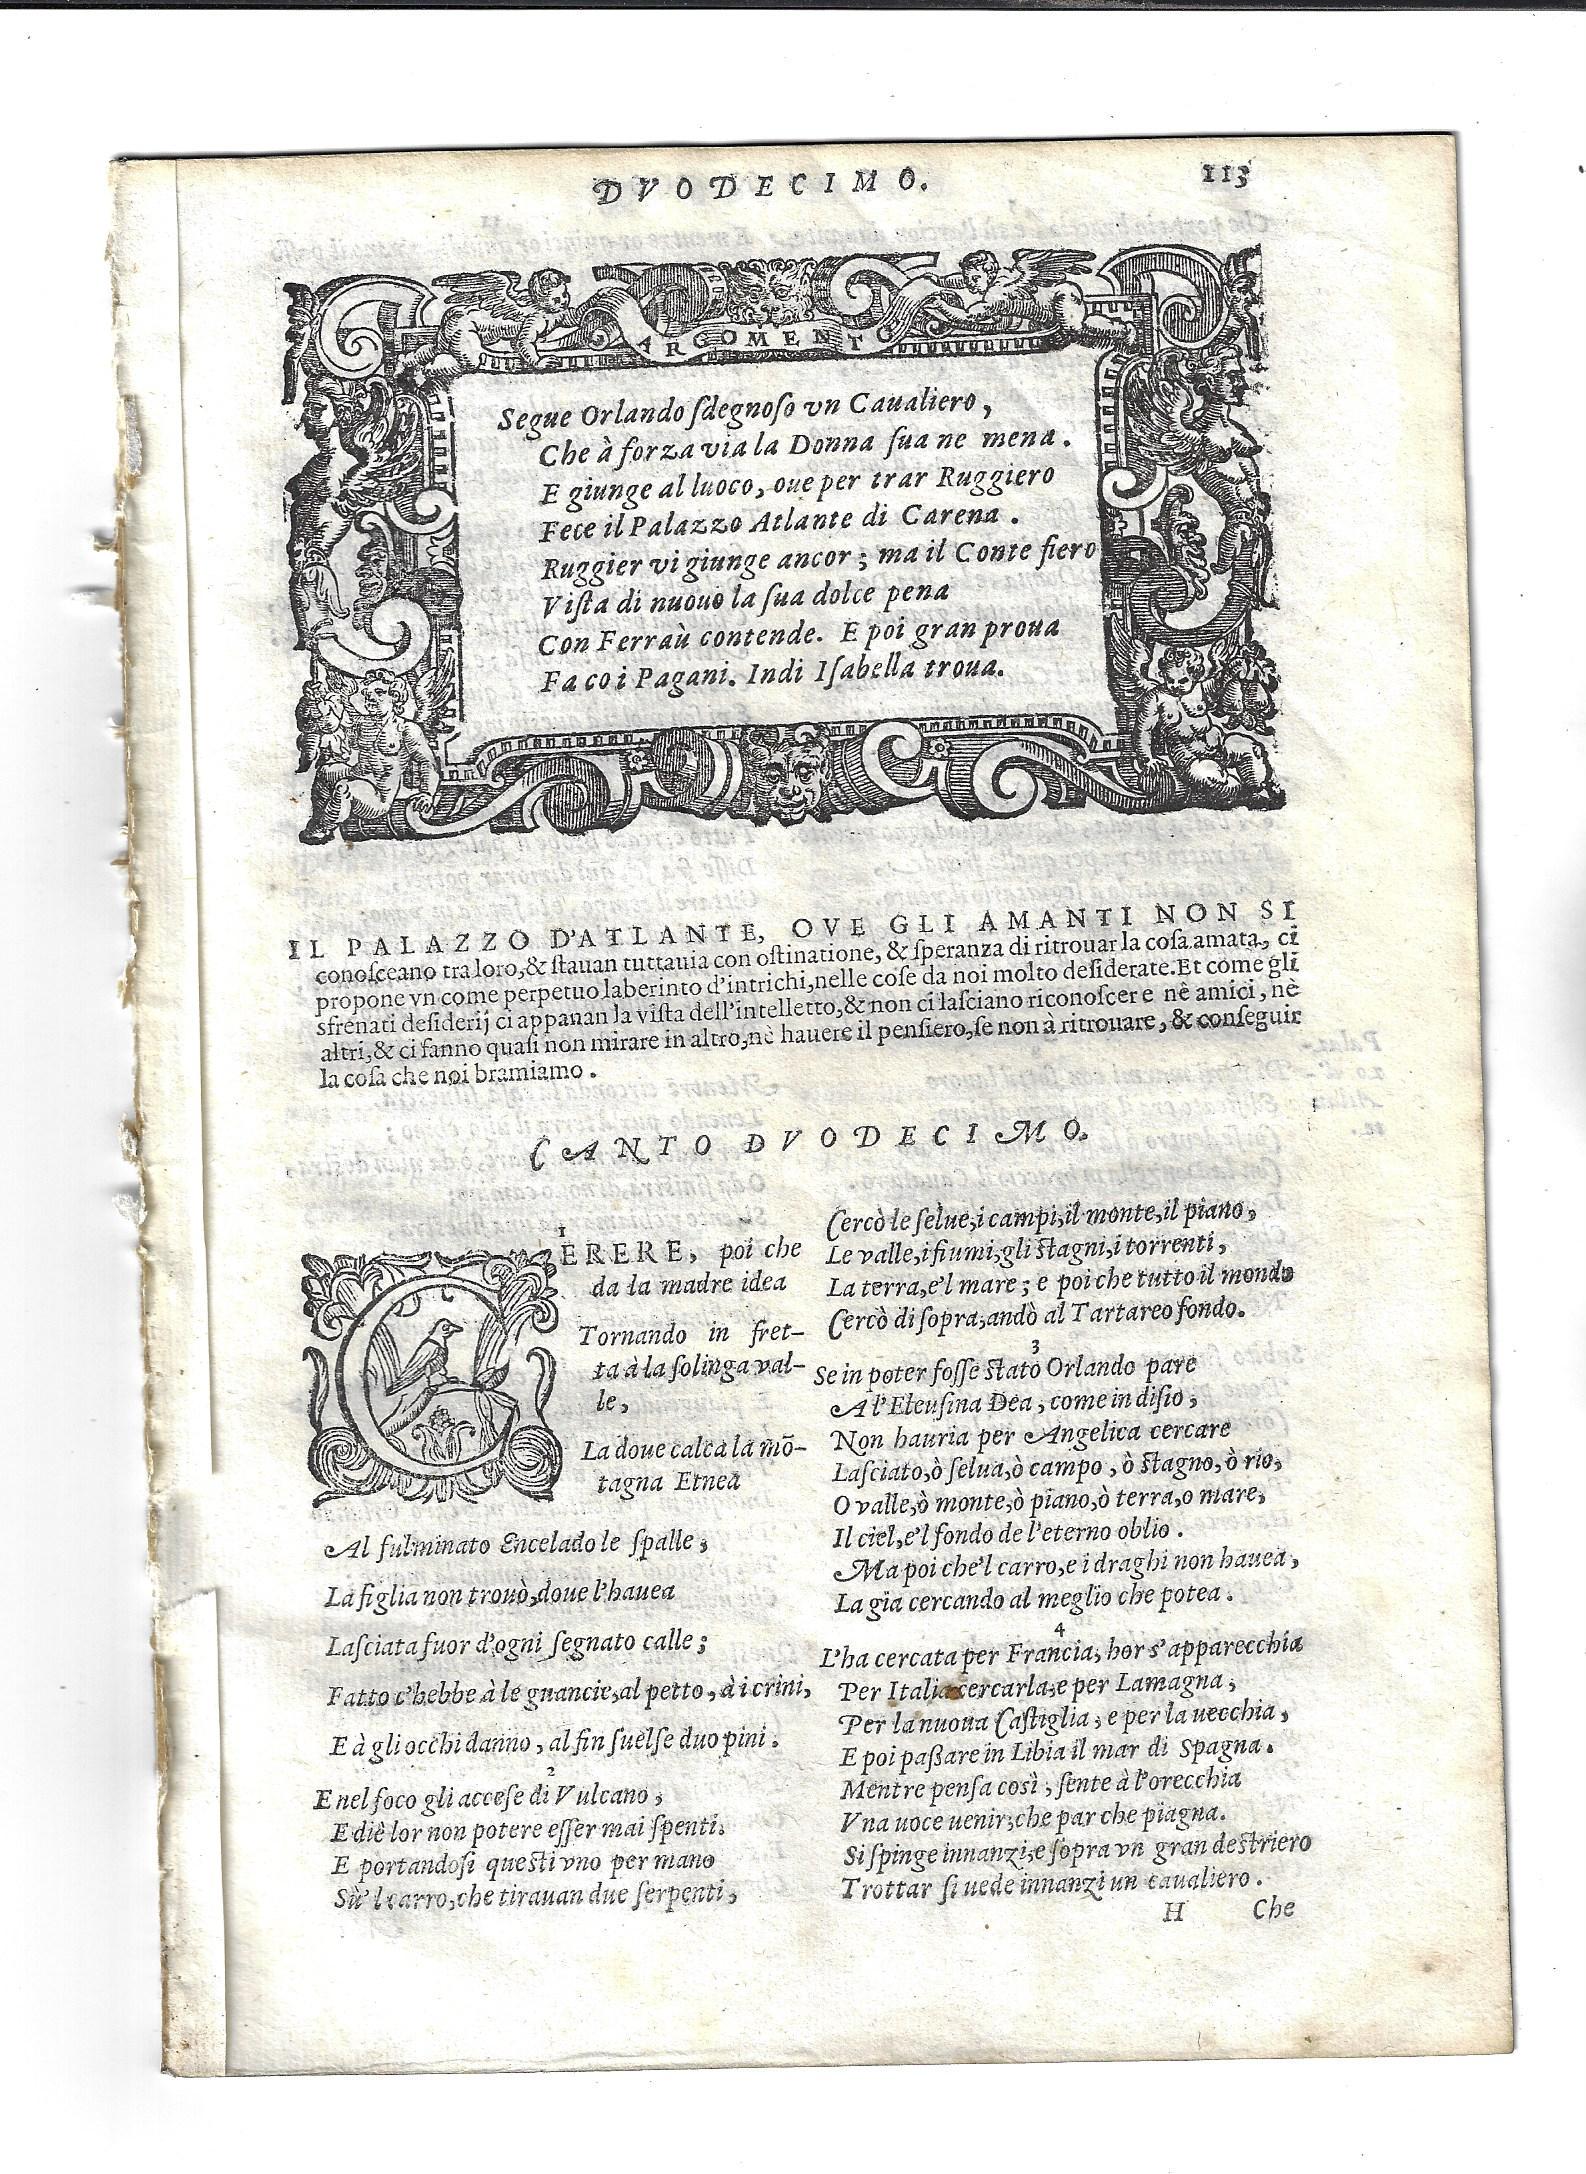 DVODECIMO.
113
ARGOMENTO
Segue Orlando ſdegnoſo vn Caualiero,
Che à forza via la Donna ſua ne mena.
E giunge al luoco, oue per trar Ruggiero
Fece il Palazzo Atlante di Carena.
Ruggier vi giunge ancor; ma il Conte fiero
Viſta di nuouo la ſua dolce pena
Con Ferraù contende. E poi gran proua
Fa co i Pagani. Indi Iſabella troua.
IL PALAZZO D'ATLANTE, OVE GLI AMANTI NON SI
conoſceano tra loro, & ſtauan tuttauia con oſtinatione, & ſperanza di ritrouar la coſa amata, ci
propone vn come perpetuo laberinto d'intrichi, nelle coſe da noi molto deſiderate. Et come gli
sfrenati deſiderij ci appanan la viſta dell'intelletto, & non ci laſciano riconoſcere nè amici, nè
altri, & ci fanno quaſi non mirare in altro, nè hauere il penſiero, ſe non à ritrouare, & conſeguir
la coſa che noi bramiamo.
CANTO DVODECIMO.
1
CERERE, poi che
da la madre idea
Tornando in fret-
ta à la ſolinga val-
le,
La doue calca la mõ-
tagna Etnea
Al fulminato Encelado le ſpalle,
La figlia non trouò, doue l'hauea
Laſciata fuor d'ogni ſegnato calle;
Fatto c'hebbe à le guancie, al petto, à i crini,
E à gli occhi danno, al fin ſuelſe duo pini.
2
E nel foco gli acceſe di Vulcano,
E diè lor non potere eſſer mai ſpenti.
E portandoſi queſti vno per mano
Sù'l carro, che tirauan due ſerpenti,
Cercò le ſelue, i campi, il monte, il piano,
Le valle, i fiumi, gli ſtagni, i torrenti,
La terra, e'l mare; e poi che tutto il mondo
Cercò di ſopra, andò al Tartareo fondo.
3
Se in poter foſſe ſtato Orlando pare
A l'Eleuſina Dea, come in diſio,
Non hauria per Angelica cercare
Laſciato, ò ſelua, ò campo, ò ſtagno, ò rio,
O valle, ò monte, ò piano, ò terra, o mare,
Il ciel, e'l fondo de l'eterno oblio.
Ma poi che'l carro, e i draghi non hauea,
La gia cercando al meglio che potea.
4
L'ha cercata per Francia, hor s'apparecchia
Per Italia cercarla, e per Lamagna,
Per la nuoua Caſtiglia, e per la vecchia,
E poi paßare in Libia il mar di Spagna.
Mentre penſa così, ſente à l'orecchia
Vna uoce uenir, che par che piagna.
Si ſpinge innanzi, e ſopra vn gran deſtriero
Trottar ſi uede innanzi un caualiero.
H Che